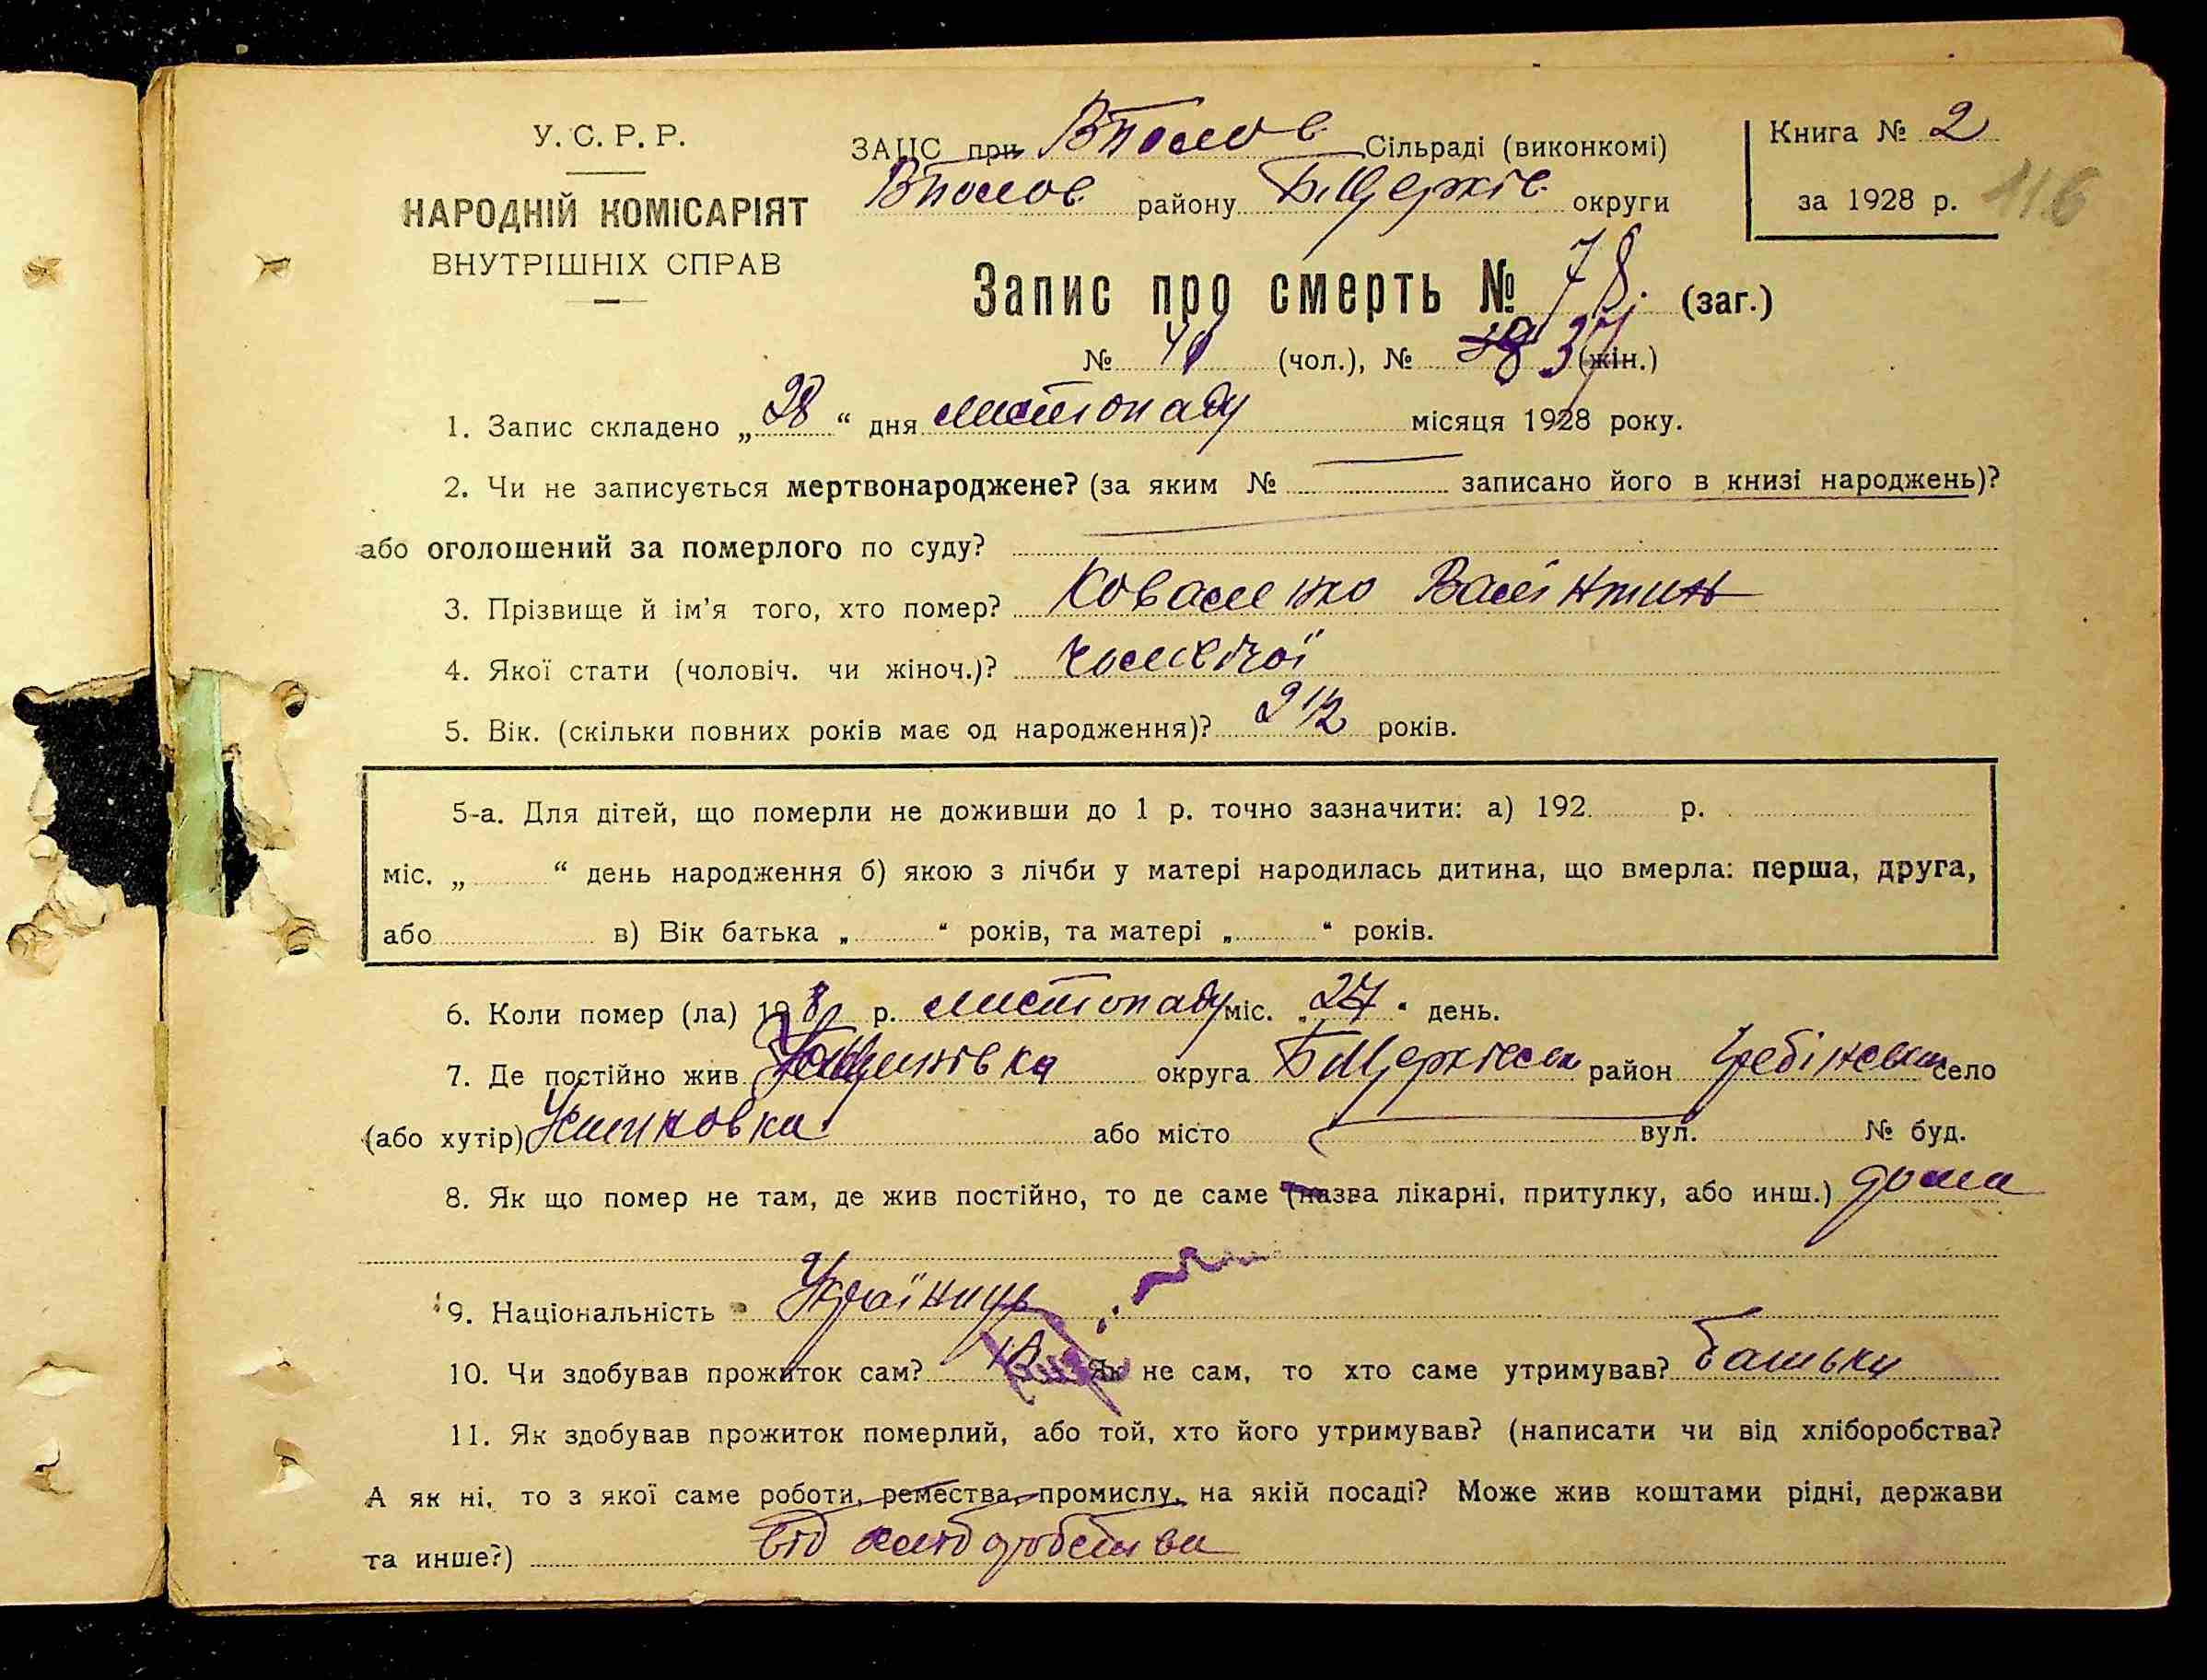 У. С. Р. Р.
НАРОДНІЙ КОМІСАРІЯТ
ВНУТРІШНІХ СПРАВ
ЗАЦС при Вполов Сільраді (виконкомі)
Вполов. району Б Церків. округи
Книга № 2
за 1928 р.
116
Запис про смерть № 78. (заг.)
№ 41 (чол.), № 37 (жін.)
1. Запис складено „28“ дня листопаду місяця 1928 року.
2. Чи не записується мертвонароджене? (за яким № записано його в книзі народжень)?
або оголошений за померлого по суду?
3. Прізвище й ім’я того, хто помер? Коваленко Валінтин
4. Якої стати (чоловіч. чи жіноч.)? чоловічої
5. Вік. (скільки повних років має од народження)? 2 1/2 років.
5-а. Для дітей, що померли не доживши до 1 р. точно зазначити: а) 192 р.
міс. „ “ день народження б) якою з лічби у матері народилась дитина, що вмерла: перша, друга,
або в) Вік батька „ “ років, та матері „ “ років.
6. Коли помер (ла) 1928 р. листопаду міс. „27“ день.
7. Де постійно жив округа Б Церківськ район Гребінськи село
(або хутір) або місто вул. № буд.
8. Як що помер не там, де жив постійно, то де саме (назва лікарні, притулку, або инш.) дома
9. Національність Українць
10. Чи здобував прожиток сам? Як не сам, то хто саме утримував? батьки
11. Як здобував прожиток померлий, або той, хто його утримував? (написати чи від хліборобства?
А як ні, то з якої саме роботи, ремества, промислу, на якій посаді? Може жив коштами рідні, держави
та инше?) від хліборобства